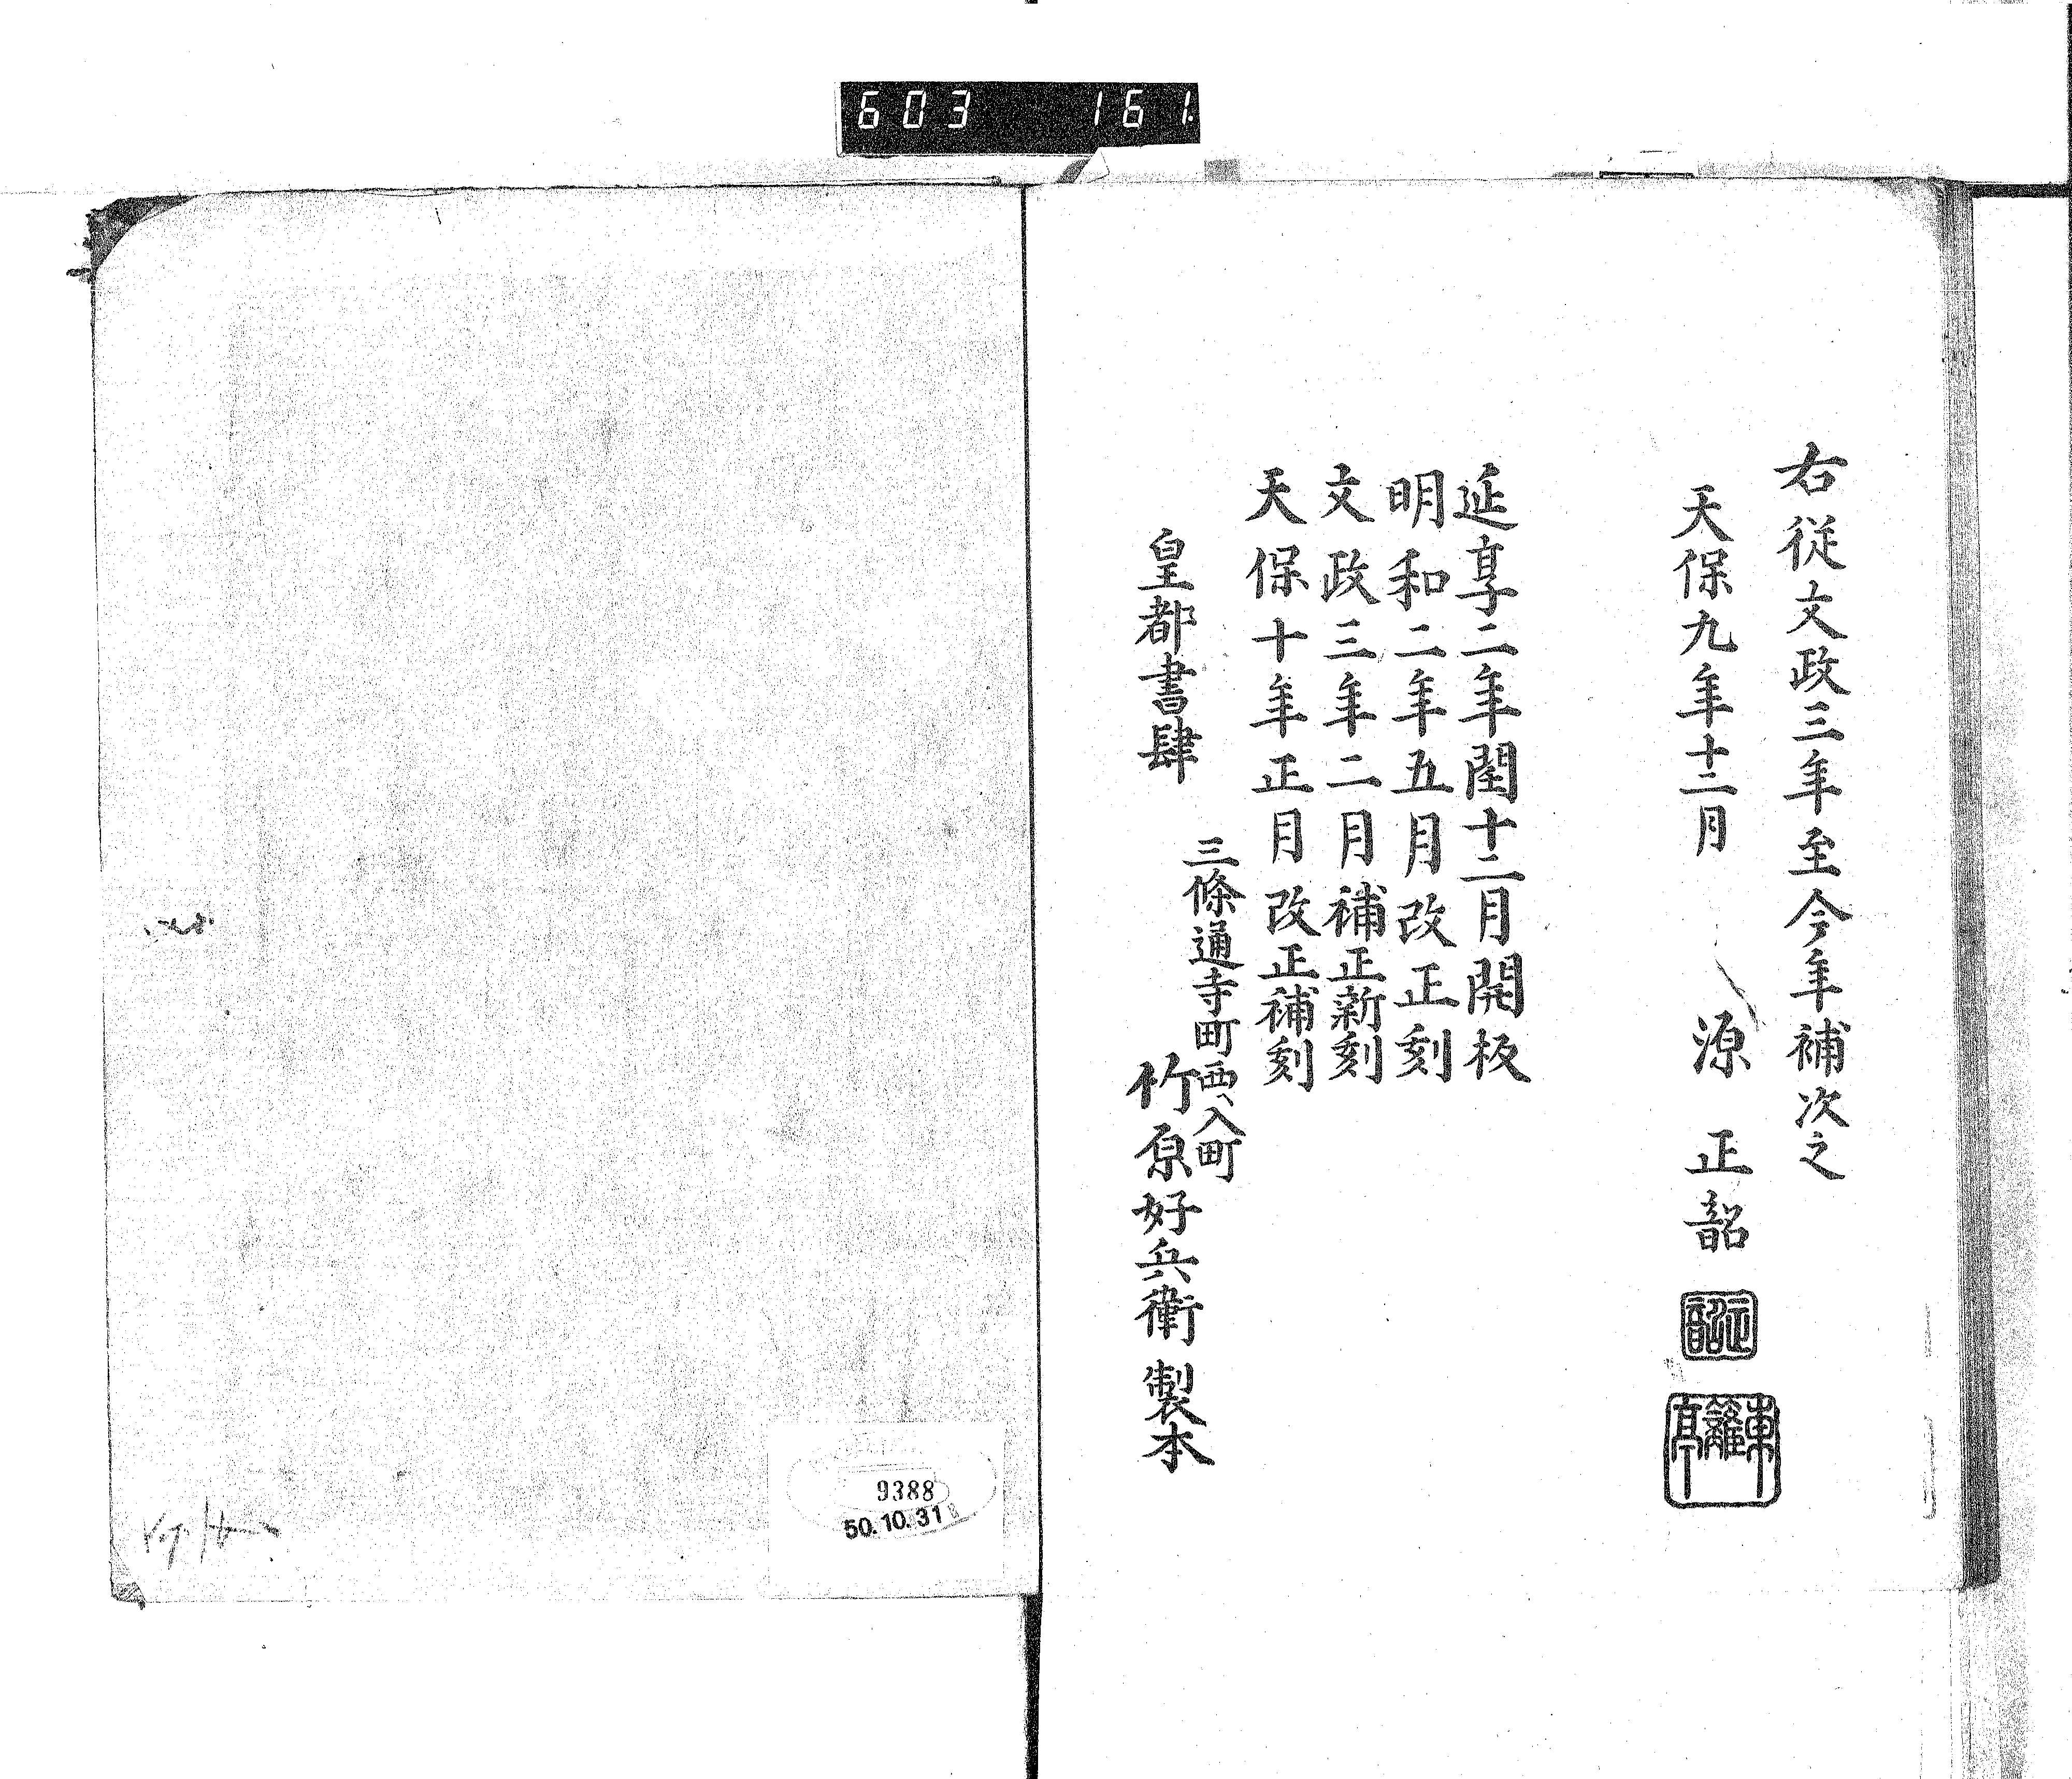 603 161.
右従文政三年至今年補次之
天保九年十二月 源正韶
正韶
東籬亭
延享二年閏十二月開板
明和二年五月改正刻
文政三年二月補正新刻
天保十年正月改正補刻
皇都書肆
三條通寺町西ヘ入町
竹原好兵衛製本
9388
50.10.31